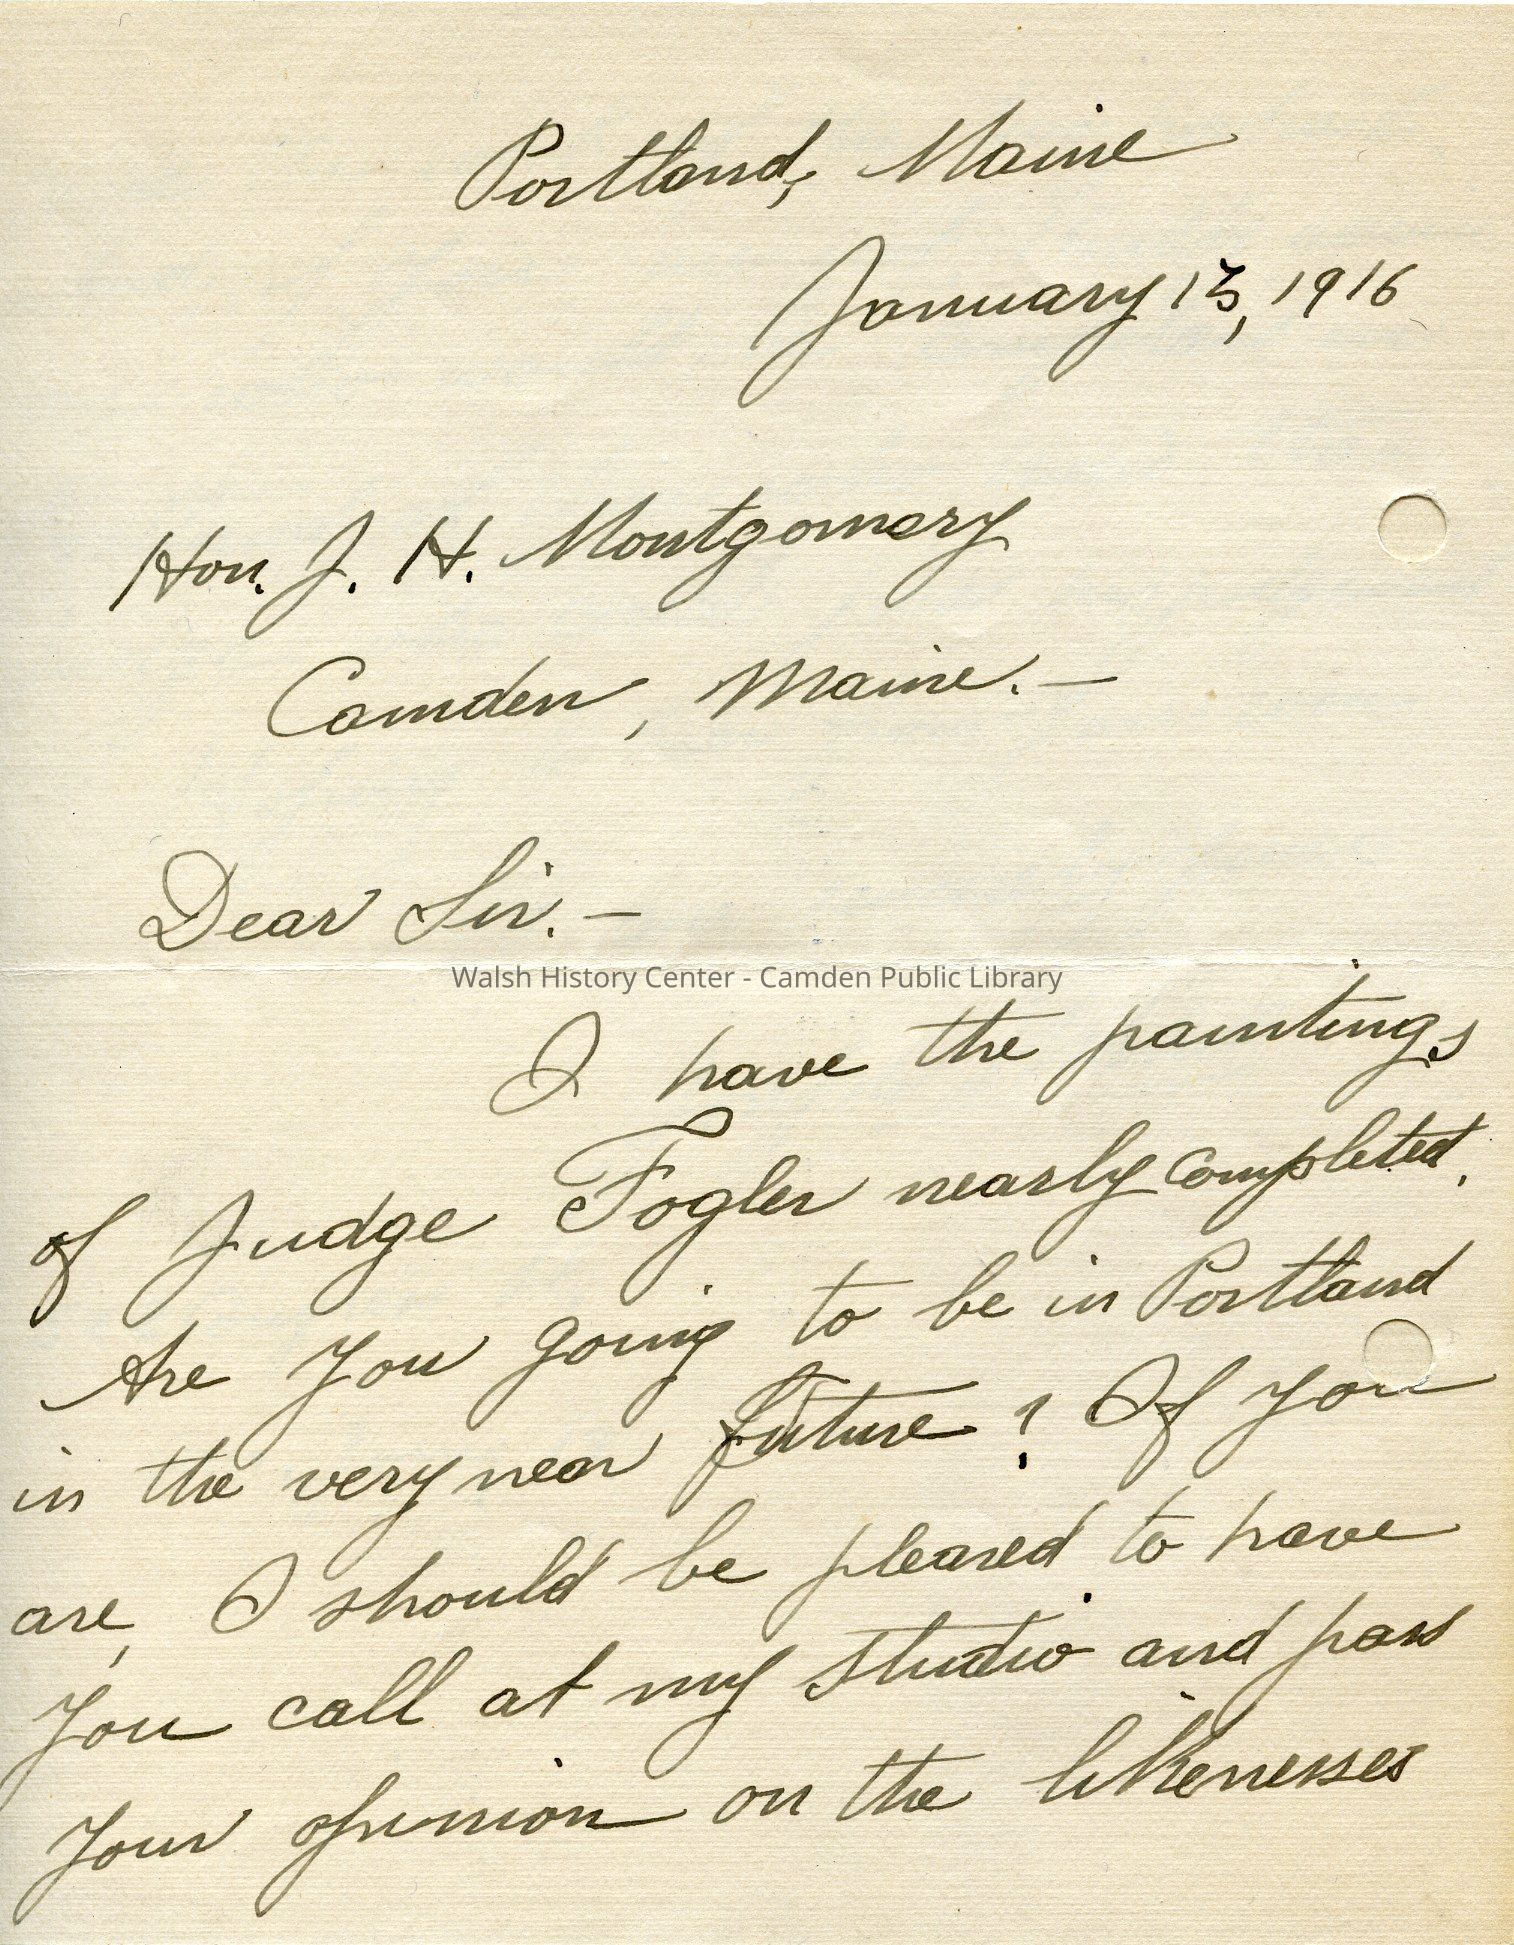 Portland, Maine
January 13, 1916
Hon. J. H. Montgomery
Camden, Maine. —
Dear Sir. —
Walsh History Center - Camden Public Library
I have the paintings
of Judge Fogler nearly completed.
Are you going to be in Portland
in the very near future? If you
are, I should be pleased to have
you call at my studio and pass
your opinion on the likenesses